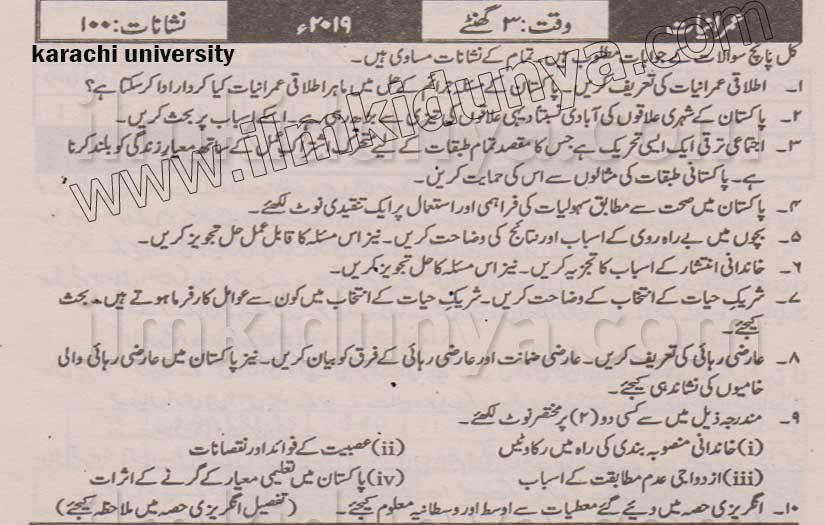 عمرانیات ۲۰۱۹ء وقت: ۳ گھنٹے نشانات: ۱۰۰
karachi university
کل پانچ سوالات کے جوابات مطلوب ہیں۔ تمام کے نشانات مساوی ہیں۔
۱۔ اطلاقی عمرانیات کی تعریف کریں۔ پاکستان کے جرائم کے حل میں ماہر اطلاقی عمرانیات کیا کردار ادا کر سکتا ہے؟
۲۔ پاکستان کے شہری علاقوں کی آبادی نسبتاً دیہی علاقوں کی تیزی سے بڑھ رہی ہے۔ اسکے اسباب پر بحث کریں۔
۳۔ اجتماعی ترقی ایک ایسی تحریک ہے جس کا مقصد تمام طبقات کے لیے اشتراک عمل کے ساتھ معیار زندگی کو بلند کرنا
ہے۔ پاکستانی طبقات کی مثالوں سے اس کی حمایت کریں۔
۴۔ پاکستان میں صحت سے مطابق سہولیات کی فراہمی اور استعمال پر ایک تنقیدی نوٹ لکھئے۔
۵۔ بچوں میں بے راہ روی کے اسباب اور نتائج کی وضاحت کریں۔ نیز اس مسئلہ کا قابل عمل حل تجویز کریں۔
۶۔ خاندانی انتشار کے اسباب کا تجزیہ کریں۔ نیز اس مسئلہ کا حل تجویز کریں۔
۷۔ شریک حیات کے انتخاب کے وضاحت کریں۔ شریکِ حیات کے انتخاب میں کون سے عوامل کارفرما ہوتے ہیں۔ بحث
کیجئے۔
۸۔ عارضی رہائی کی تعریف کریں۔ عارضی ضمانت اور عارضی رہائی کے فرق کو بیان کریں۔ نیز پاکستان میں عارضی رہائی والی
خامیوں کی نشاندہی کیجئے۔
۹۔ مندرجہ ذیل میں سے کسی دو (۲) پر مختصر نوٹ لکھئے۔
(i) خاندانی منصوبہ بندی کی راہ میں رکاوٹیں (ii) عصبیت کے فوائد اور نقصانات
(iii) ازدواجی عدم مطابقت کے اسباب (iv) پاکستان میں تعلیمی معیار کے گرنے کے اثرات
۱۰۔ انگریزی حصہ میں دیئے گئے معطیات سے اوسط اور وسطانیہ معلوم کیجئے۔ (تفصیل انگریزی حصہ میں ملاحظہ کیجئے)
www.ilmkidunya.com
ilmkidunya.com
ilmkidunya.com